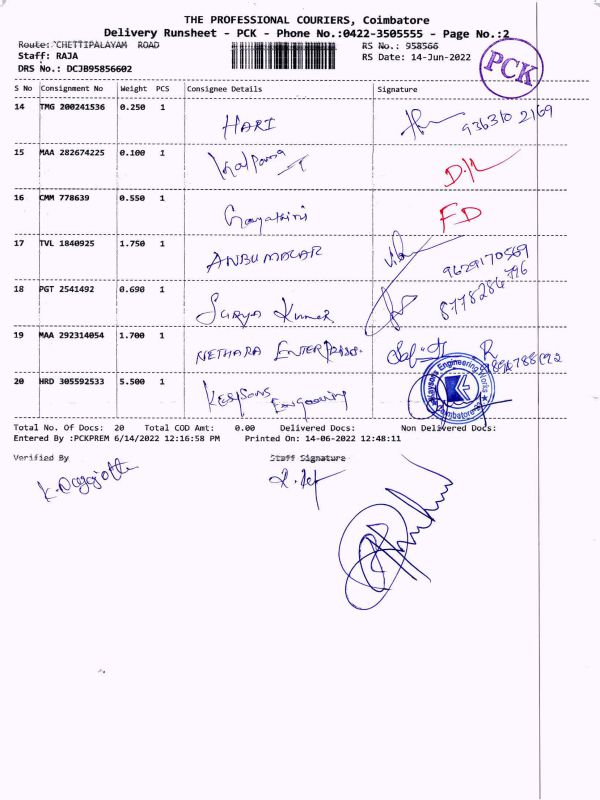 THE PROFESSIONAL COURIERS, Coimbatore
Delivery Runsheet - PCK - Phone No.:0422-3505555 - Page No.:2
Route: CHETTIPALAYAM ROAD RS No.: 958566
Staff: RAJA RS Date: 14-Jun-2022
DRS No.: DCJB95856602
PCK
S No Consignment No Weight PCS Consignee Details Signature
14 TMG 200241536 0.250 1 HARI 936310 2169
15 MAA 282674225 0.100 1 Kalpana D.K
16 CMM 778639 0.550 1 Gayathiri FD
17 TVL 1840925 1.750 1 ANBUMALAR 9629170569
18 PGT 2541492 0.690 1 Surya Kumar 8778286796
19 MAA 292314054 1.700 1 NETHARA ENTERPRISES.
20 HRD 305592533 5.500 1 Keysons Engeering
Keysons Engineering Works
Coimbatore
Total No. Of Docs: 20 Total COD Amt: 0.00 Delivered Docs: Non Delivered Docs:
Entered By :PCKPREM 6/14/2022 12:16:58 PM Printed On: 14-06-2022 12:48:11
Verified By Staff Signature